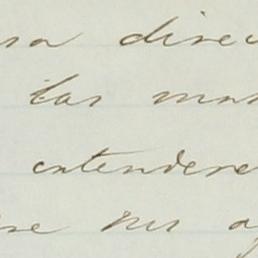 sa direc
las man
entendere
se sus a